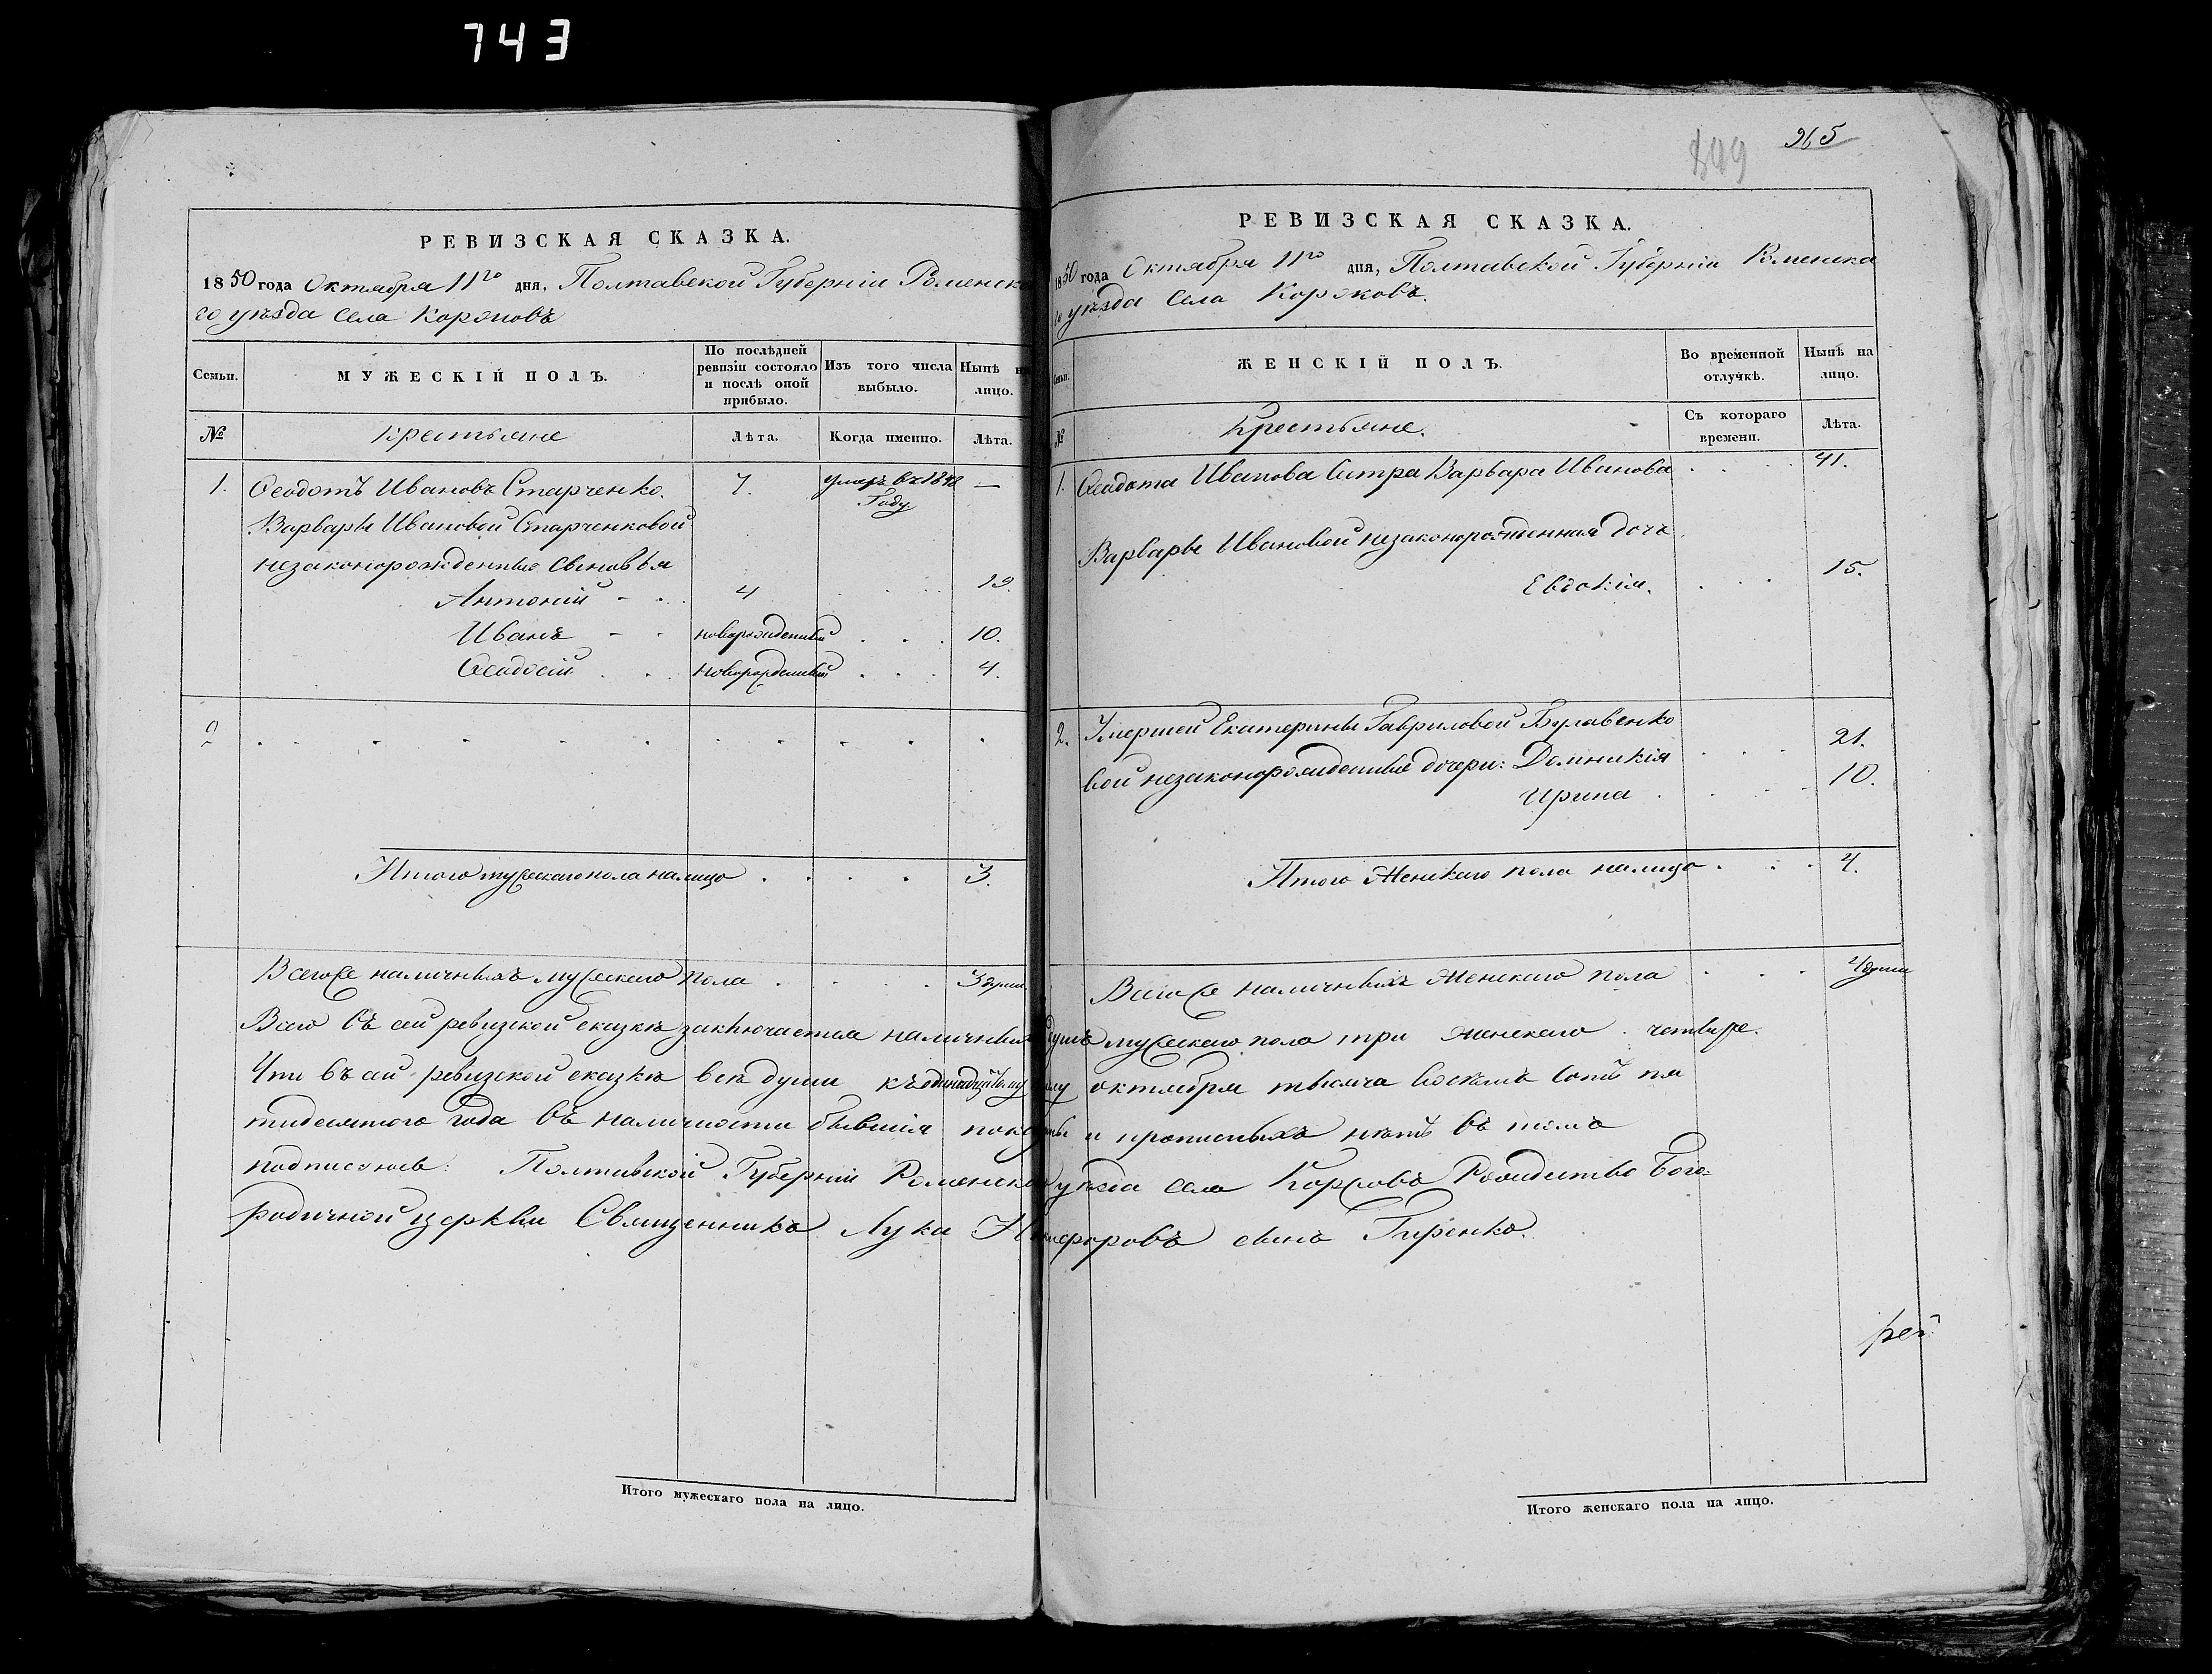 743
РЕВИЗСКАЯ СКАЗКА.
1850 года Октября 11го дня, Полтавской Губерніи Роменска
го уѣзда Села Корововъ
Семьи.
МУЖЕСКІЙ ПОЛЪ.
По послѣдней ревизіи состояло и послѣ оной прибыло.
Изъ того числа выбыло.
Нынѣ на лицо.
№
Крестьяне
Лѣта.
Когда именно.
Лѣта.
1. Ѳеодотъ Ивановъ Старченко. 7. умеръ въ 1848 Году. —
Варвары Ивановой Старченковой
незаконорожденные Сыновья
Антоній - . 4 . . . 19.
Иванъ - - новорожденный . . . 10.
Ѳеодосій . . новорожденный . . . 4.
2 . . . . . . . . .
Итого мужескаго пола налицо . . . . 3.
Всего же наличныхъ мужескаго пола . . . . 3 души
Всего въ сей ревизской сказкѣ заключается наличныхъ
Что въ сей ревизской сказкѣ всѣ души къ одинадцатому
тидесятого года въ наличности бывшія пока
подписуюсь: Полтавской Губерніи Роменска
родичной церкви Священникъ Лука Ни
965
РЕВИЗСКАЯ СКАЗКА.
1850 года Октября 11го дня, Полтавской Губерніи Роменска
го уѣзда Села
Семьи.
ЖЕНСКІЙ ПОЛЪ.
Во временной отлучкѣ.
Нынѣ на лицо.
№
Крестьяне.
Съ котораго времени.
Лѣта.
1. Ѳеодота Иванова Систра Варвара Иванова . . . 41.
Варвары Ивановой незаконорожденная дочь
Евдокія. . . . 15.
2. Умершей Екатерины Гавриловой Булавенко
вой незаконорожденные дочери: Домникія . . . 21.
Ирина . . . . 10.
Итого Женскаго пола налицо . . . 4.
Всего же наличныхъ Женскаго пола . . . 4 души
душъ мужескаго пола три женскаго . четыре.
октября тысяча восемъ сотъ пя
ны и прописныхъ нѣтъ въ томъ
уѣзда села Рождество Бого=
кифоровъ сынъ Гиренко.
Итого мужескаго пола на лицо.
Итого женскаго пола на лицо.